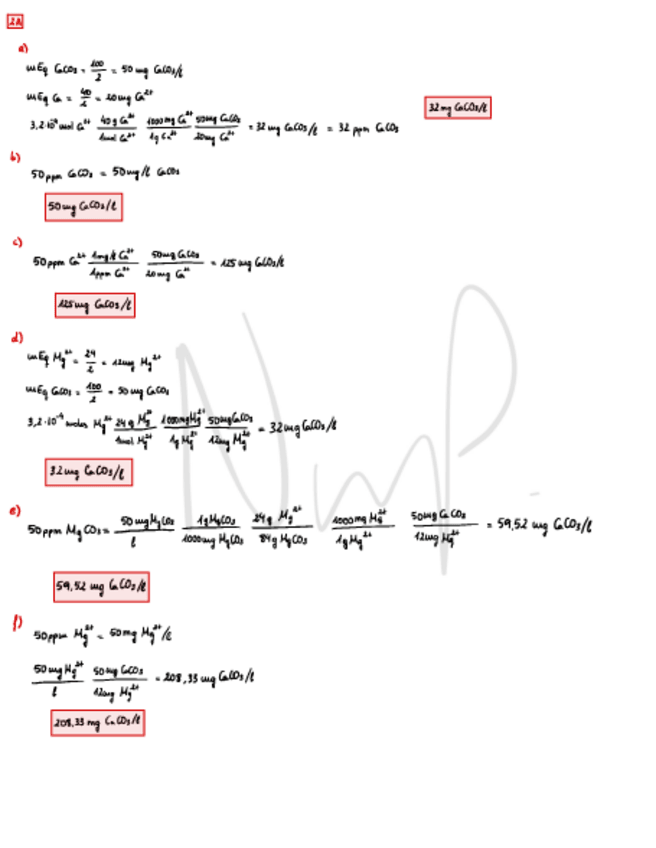 2A
a)
mEq CaCO3 = 100/2 = 50 mg CaCO3/l
mEq Ca = 40/2 = 20 mg Ca²⁺
3,2·10⁻⁴ mol Ca²⁺ 40 g Ca²⁺/1 mol Ca²⁺ 1000 mg Ca²⁺/1 g Ca²⁺ 50 mg CaCO3/20 mg Ca²⁺ = 32 mg CaCO3/l = 32 ppm CaCO3
32 mg CaCO3/l
b)
50 ppm CaCO3 = 50 mg/l CaCO3
50 mg CaCO3/l
c)
50 ppm Ca²⁺ 1 mg/l Ca²⁺/1 ppm Ca²⁺ 50 mg CaCO3/20 mg Ca²⁺ = 125 mg CaCO3/l
125 mg CaCO3/l
d)
mEq Mg²⁺ = 24/2 = 12 mg Mg²⁺
mEq CaCO3 = 100/2 = 50 mg CaCO3
3,2·10⁻⁴ moles Mg²⁺ 24 g Mg²⁺/1 mol Mg²⁺ 1000 mg Mg²⁺/1 g Mg²⁺ 50 mg CaCO3/12 mg Mg²⁺ = 32 mg CaCO3/l
32 mg CaCO3/l
e)
50 ppm MgCO3 = 50 mg MgCO3/l 1 g MgCO3/1000 mg MgCO3 24 g Mg²⁺/84 g MgCO3 1000 mg Mg²⁺/1 g Mg²⁺ 50 mg CaCO3/12 mg Mg²⁺ = 59,52 mg CaCO3/l
59,52 mg CaCO3/l
f)
50 ppm Mg²⁺ = 50 mg Mg²⁺/l
50 mg Mg²⁺/l 50 mg CaCO3/12 mg Mg²⁺ = 208,33 mg CaCO3/l
208,33 mg CaCO3/l